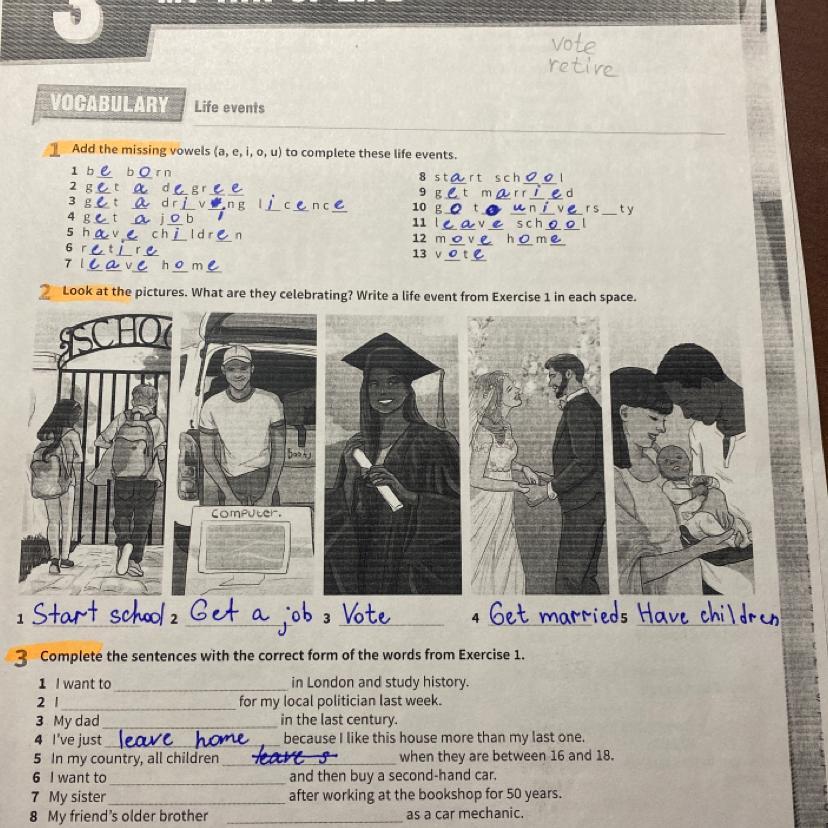 3
vote
retire
VOCABULARY Life events
1 Add the missing vowels (a, e, i, o, u) to complete these life events.
1 be born
2 get a degree
3 get a driving licence
4 get a job
5 have children
6 retire
7 leave home
8 start school
9 get married
10 go to univers_ty
11 leave school
12 move home
13 vote
2 Look at the pictures. What are they celebrating? Write a life event from Exercise 1 in each space.
SCHOO
Books
COMPUTER.
1 Start school 2 Get a job 3 Vote 4 Get married 5 Have children
3 Complete the sentences with the correct form of the words from Exercise 1.
1 I want to ____ in London and study history.
2 I ____ for my local politician last week.
3 My dad ____ in the last century.
4 I've just leave home because I like this house more than my last one.
5 In my country, all children leave s when they are between 16 and 18.
6 I want to ____ and then buy a second-hand car.
7 My sister ____ after working at the bookshop for 50 years.
8 My friend's older brother ____ as a car mechanic.